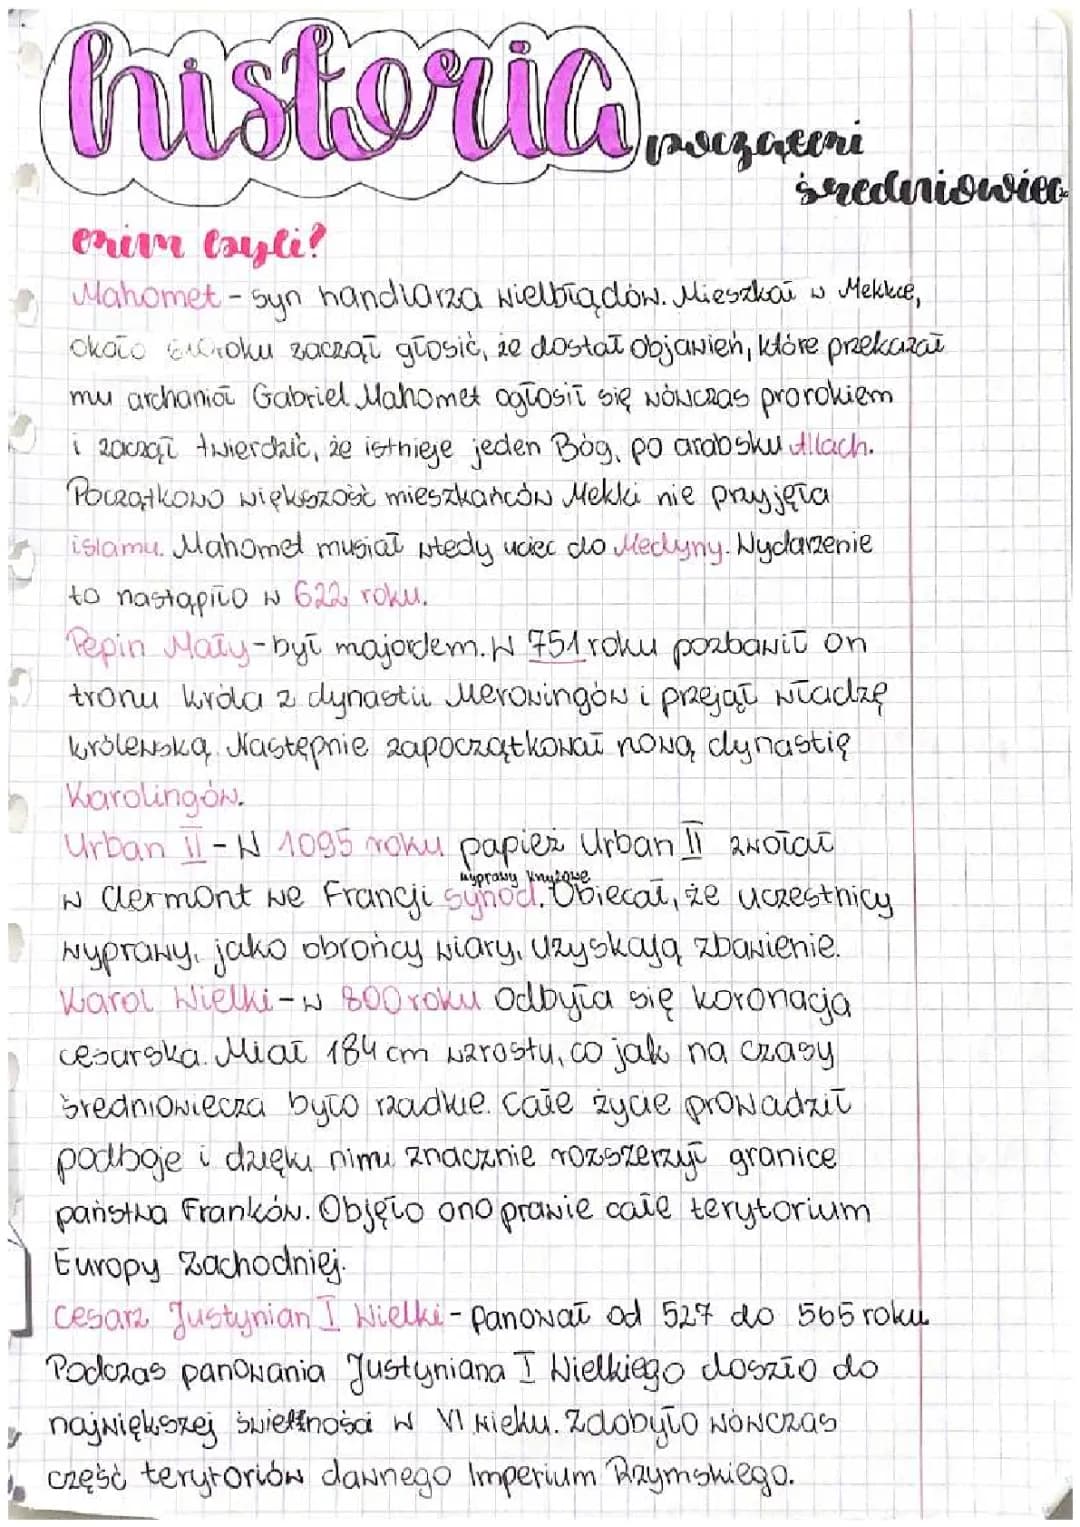 historia
początki
średniowiecza
kim byli?
Mahomet - syn handlarza wielbłądów. Mieszkał w Mekkce,
około roku zaczął głosić, że dostał objawień, które przekazał
mu archanioł Gabriel. Mahomet ogłosił się wówczas prorokiem
i zaczął twierdzić, że istnieje jeden Bóg, po arabsku Allach.
Początkowo większość mieszkańców Mekki nie przyjęła
islamu. Mahomet musiał wtedy uciec do Medyny. Wydarzenie
to nastąpiło w 622 roku.
Pepin Mały - był majordem. W 751 roku pozbawił on
tronu króla z dynastii Merowingów i przejął władzę
królewską. Następnie zapoczątkował nową dynastię
Karolingów.
Urban II - W 1095 roku papież Urban II zwołał
wyprawy krzyżowe
w Clermont we Francji synod. Obiecał, że uczestnicy
wyprawy, jako obrońcy wiary, uzyskają zbawienie.
Karol Wielki - w 800 roku odbyła się koronacja
cesarska. Miał 184 cm wzrostu, co jak na czasy
średniowiecza było rzadkie. Całe życie prowadził
podboje i dzięki nimi znacznie rozszerzył granice
państwa Franków. Objęło ono prawie całe terytorium
Europy Zachodniej.
Cesarz Justynian I Wielki - panował od 527 do 565 roku
Podczas panowania Justyniana I Wielkiego doszło do
największej świetności w VI wieku. Zdobyło wówczas
część terytoriów dawnego Imperium Rzymskiego.